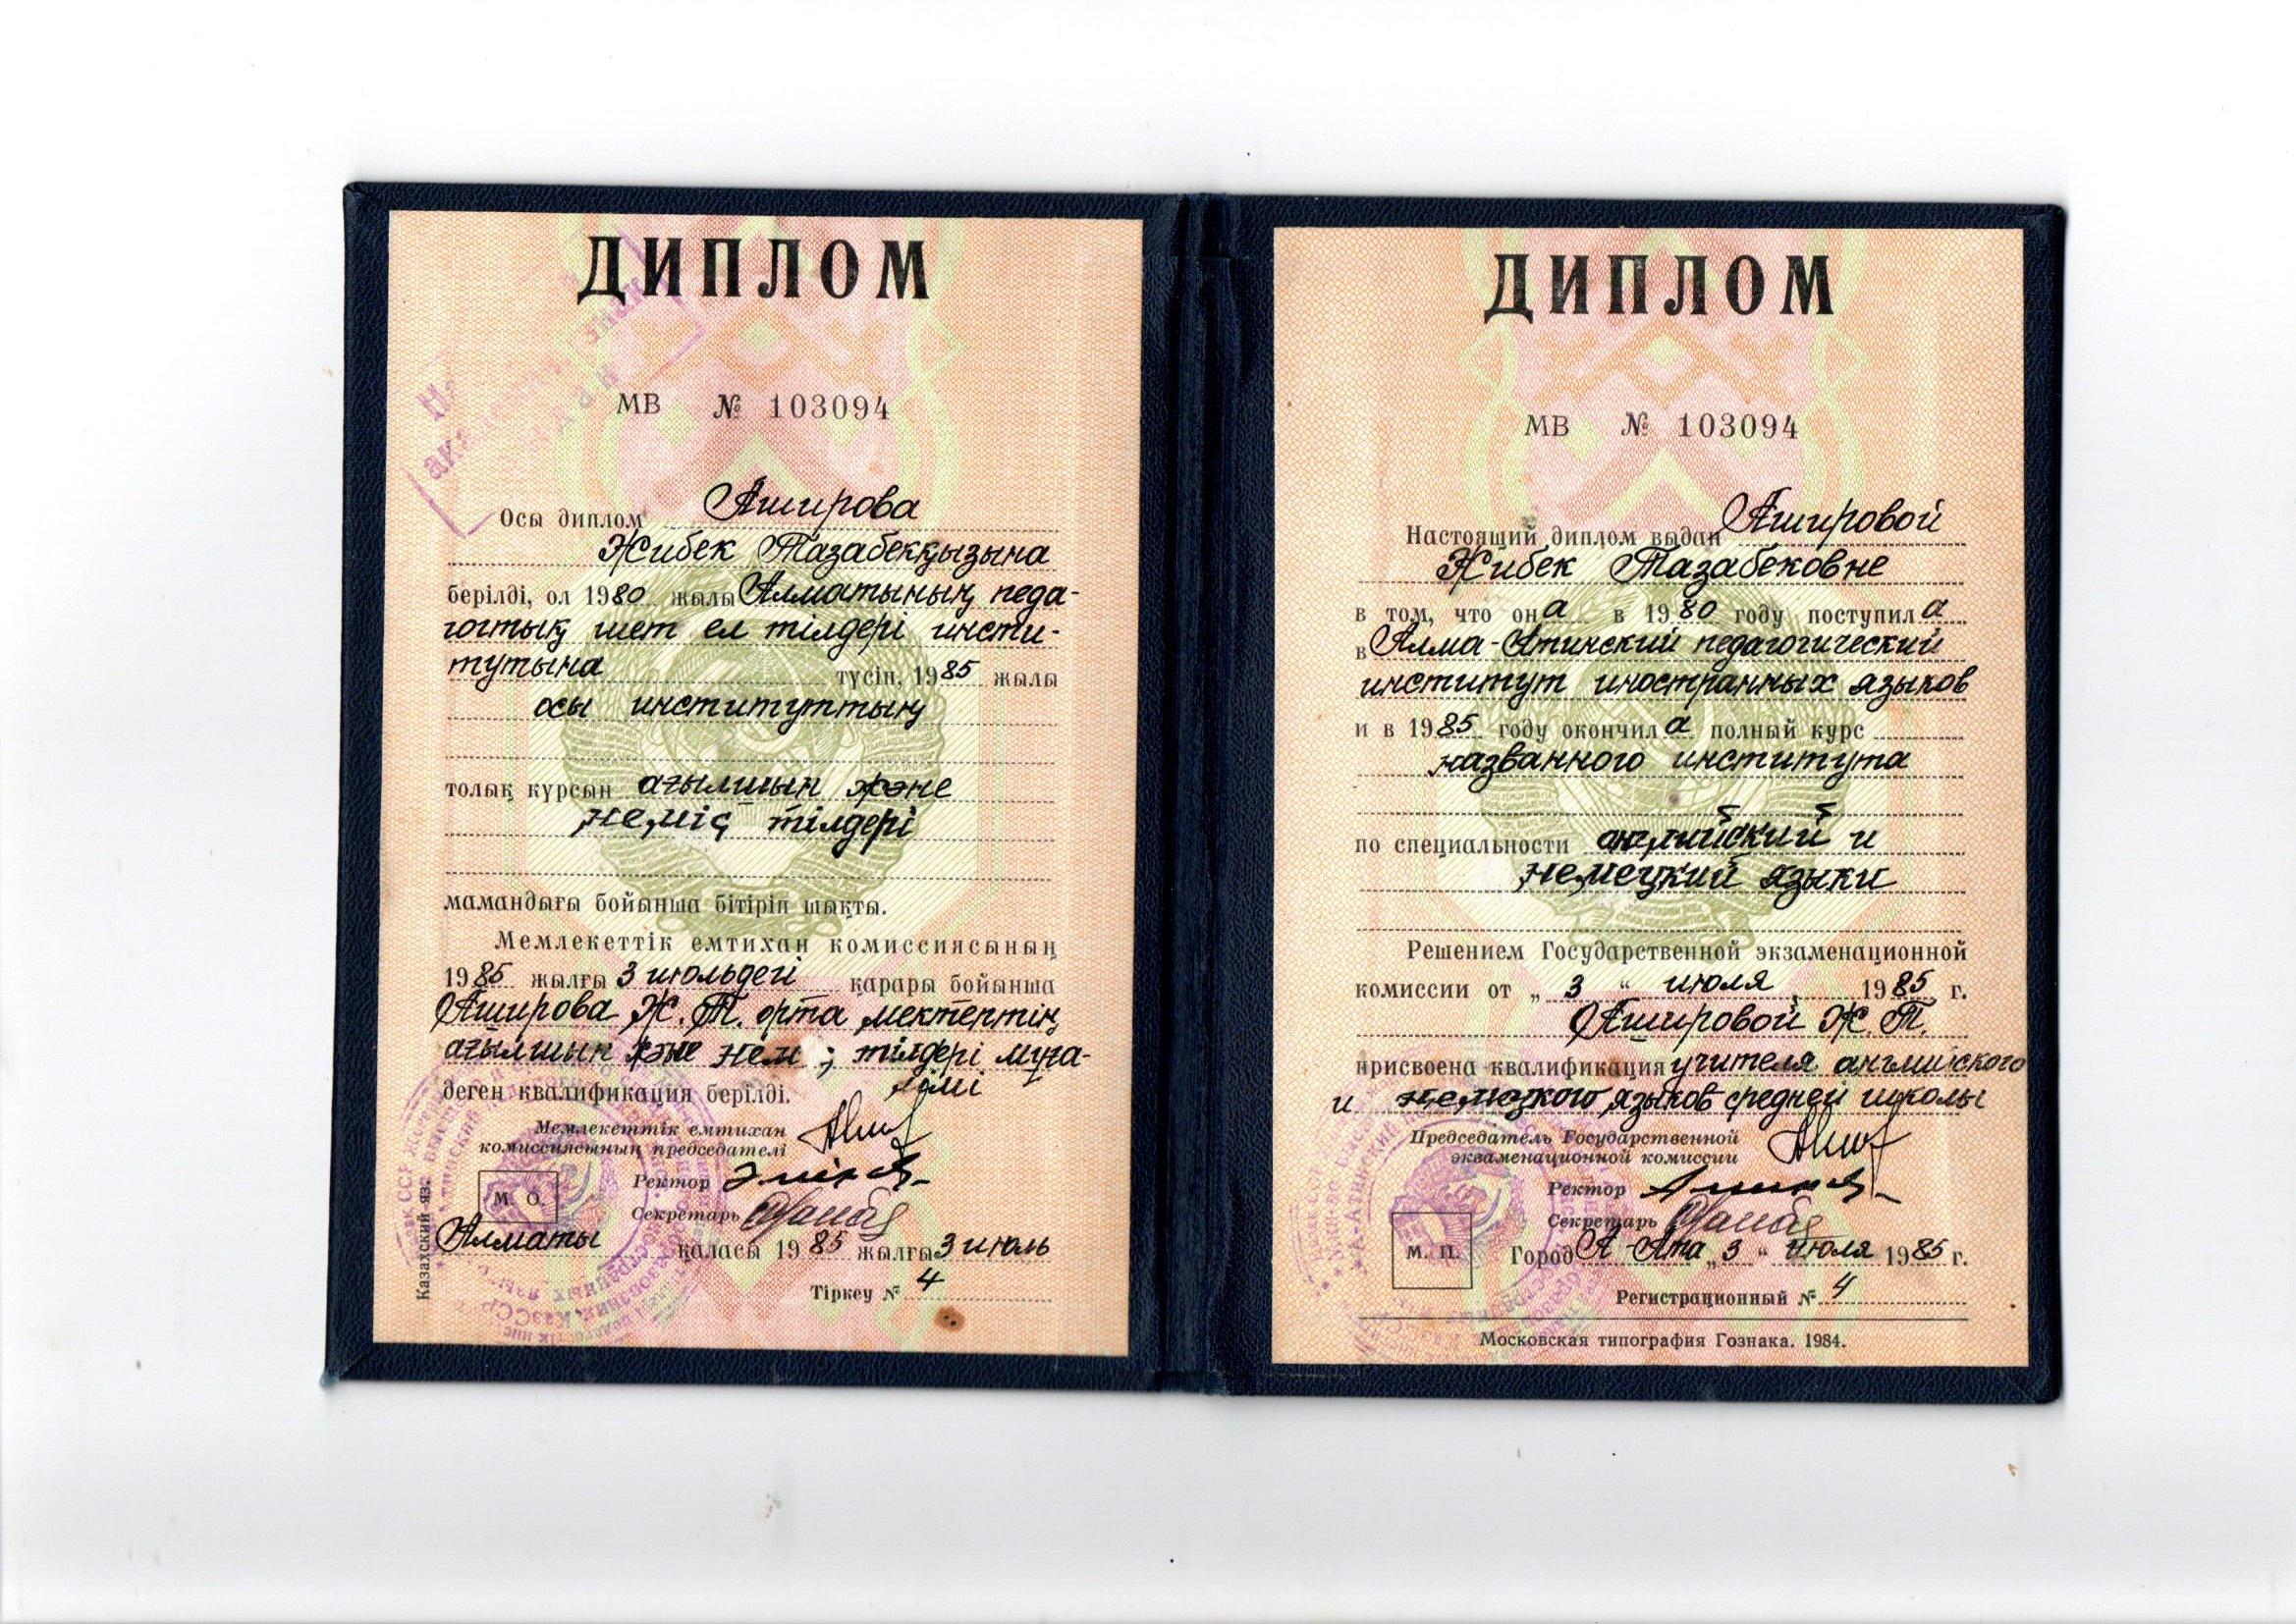 ДИПЛОМ
МВ № 103094
Осы диплом Аширова
Жибек Тазабекқызына
берілді, ол 1980 жылы Алматының педа-
гогтық шет ел тілдері инсти-
тутына түсіп, 1985 жылы
осы институттың
толық курсын ағылшын және
неміс тілдері
мамандығы бойынша бітіріп шықты.
Мемлекеттік емтихан комиссиясының
1985 жылғы 3 июльдегі қарары бойынша
Аширова Ж. Т. орта мектептің
ағылшын және нем ; тілдері мұға-
лімі
деген квалификация берілді.
Мемлекеттік емтихан
комиссиясының председателі
Ректор
Секретарь
М. О.
Алматы қаласы 1985 жылғы 3 июль
Тіркеу № 4
Казахский яз.
ДИПЛОМ
МВ № 103094
Настоящий диплом выдан Ашировой
Жибек Тазабековне
в том, что она в 1980 году поступила
в Алма-Атинский педагогический
институт иностранных языков
и в 1985 году окончила полный курс
названного института
по специальности английский и
немецкий языки
Решением Государственной экзаменационной
комиссии от „ 3 “ июля 1985 г.
Ашировой Ж. Т.
присвоена квалификация учителя английского
и немецкого языков средней школы
Председатель Государственной
экзаменационной комиссии
Ректор
Секретарь
М. П.
Город А-Ата „ 3 “ июля 1985 г.
Регистрационный № 4
Московская типография Гознака. 1984.